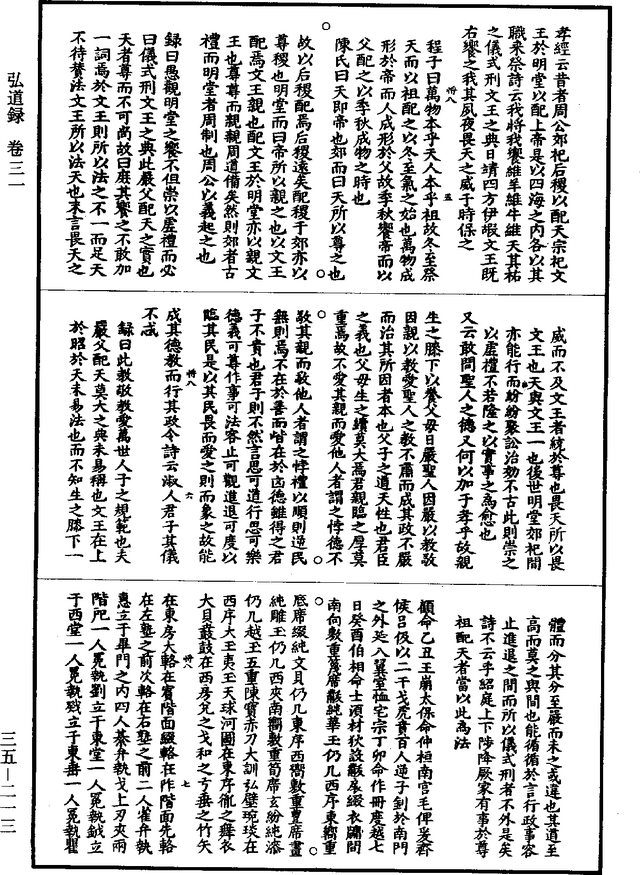 弘道録　卷三一
三五—二一三
孝經云昔者周公郊祀后稷以配天宗祀文
王於明堂以配上帝是以四海之内各以其
職來祭詩云我將我饗維羊維牛維天其祐
之儀式刑文王之典日靖四方伊嘏文王既
右饗之我其夙夜畏天之威于時保之
卅八　五
程子曰萬物本乎天人本乎祖故冬至祭
天而以祖配之以冬至氣之始也萬物成
形於帝而人成形於父故季秋饗帝而以
父配之以季秋成物之時也
陳氏曰天即帝也郊而曰天所以尊之也
故以后稷配焉后稷遠矣配稷于郊亦以
尊稷也明堂而曰帝所以親之也以文王
配焉文王親也配文王於明堂亦以親文
王也尊尊而親親周道備矣然則郊者古
禮而明堂者周制也周公以義起之也
録曰愚觀明堂之饗不但崇以虛禮而必
曰儀式刑文王之典此嚴父配天之實也
天者尊而不可尚故曰庶其饗之不敢加
一詞焉於文王則所以法之不一而足天
不待贊法文王所以法天也末言畏天之
威而不及文王者統於尊也畏天所以畏
文王也天與文王一也後世明堂郊祀間
亦能行而紛紛聚訟治効不古此則崇之
以虛禮不若隆之以實事之爲愈也
又云敢問聖人之德又何以加于孝乎故親
生之膝下以養父母日嚴聖人因嚴以教敬
因親以教愛聖人之教不肅而成其政不嚴
而治其所因者本也父子之道天性也君臣
之義也父母生之續莫大焉君親臨之厚莫
重焉故不愛其親而愛他人者謂之悖德不
敬其親而敬他人者謂之悖禮以順則逆民
無則焉不在於善而皆在於凶德雖得之君
子不貴也君子則不然言思可道行思可樂
德義可尊作事可法容止可觀進退可度以
臨其民是以其民畏而愛之則而象之故能
卅八　六
成其德教而行其政令詩云淑人君子其儀
不忒
録曰此教敬教愛萬世人子之規範也夫
嚴父配天莫大之典未易稱也文王在上
於昭於天未易法也而不知生之膝下一
體而分其分至嚴而未之或違也其道至
高而莫之與間也能循循於言行政事容
止進退之間而所以儀式刑者不外是矣
詩不云乎紹庭上下陟降厥家有事於尊
祖配天者當以此爲法
顧命乙丑王崩太保命仲桓南宫毛俾爰齊
侯吕伋以二干戈虎賁百人逆子釗於南門
之外延入翼室恤宅宗丁卯命作冊度越七
日癸酉伯相命士須材狄設黼扆綴衣牖間
南向敷重蔑席黼純華玉仍几西序東嚮敷重
底席綴純文貝仍几東序西嚮敷重豐席畫
純雕玉仍几西夾南嚮敷重筍席玄紛純漆
仍几越玉五重陳寶赤刀大訓弘璧琬琰在
西序大玉夷玉天球河圖在東序胤之舞衣
大貝鼖鼓在西房兌之戈和之弓垂之竹矢
卅八　七
在東房大輅在賓階面綴輅在阼階面先輅
在左塾之前次輅在右塾之前二人雀弁執
惠立于畢門之内四人綦弁執戈上刃夾兩
階戺一人冕執劉立于東堂一人冕執鉞立
于西堂一人冕執戣立于東垂一人冕執瞿